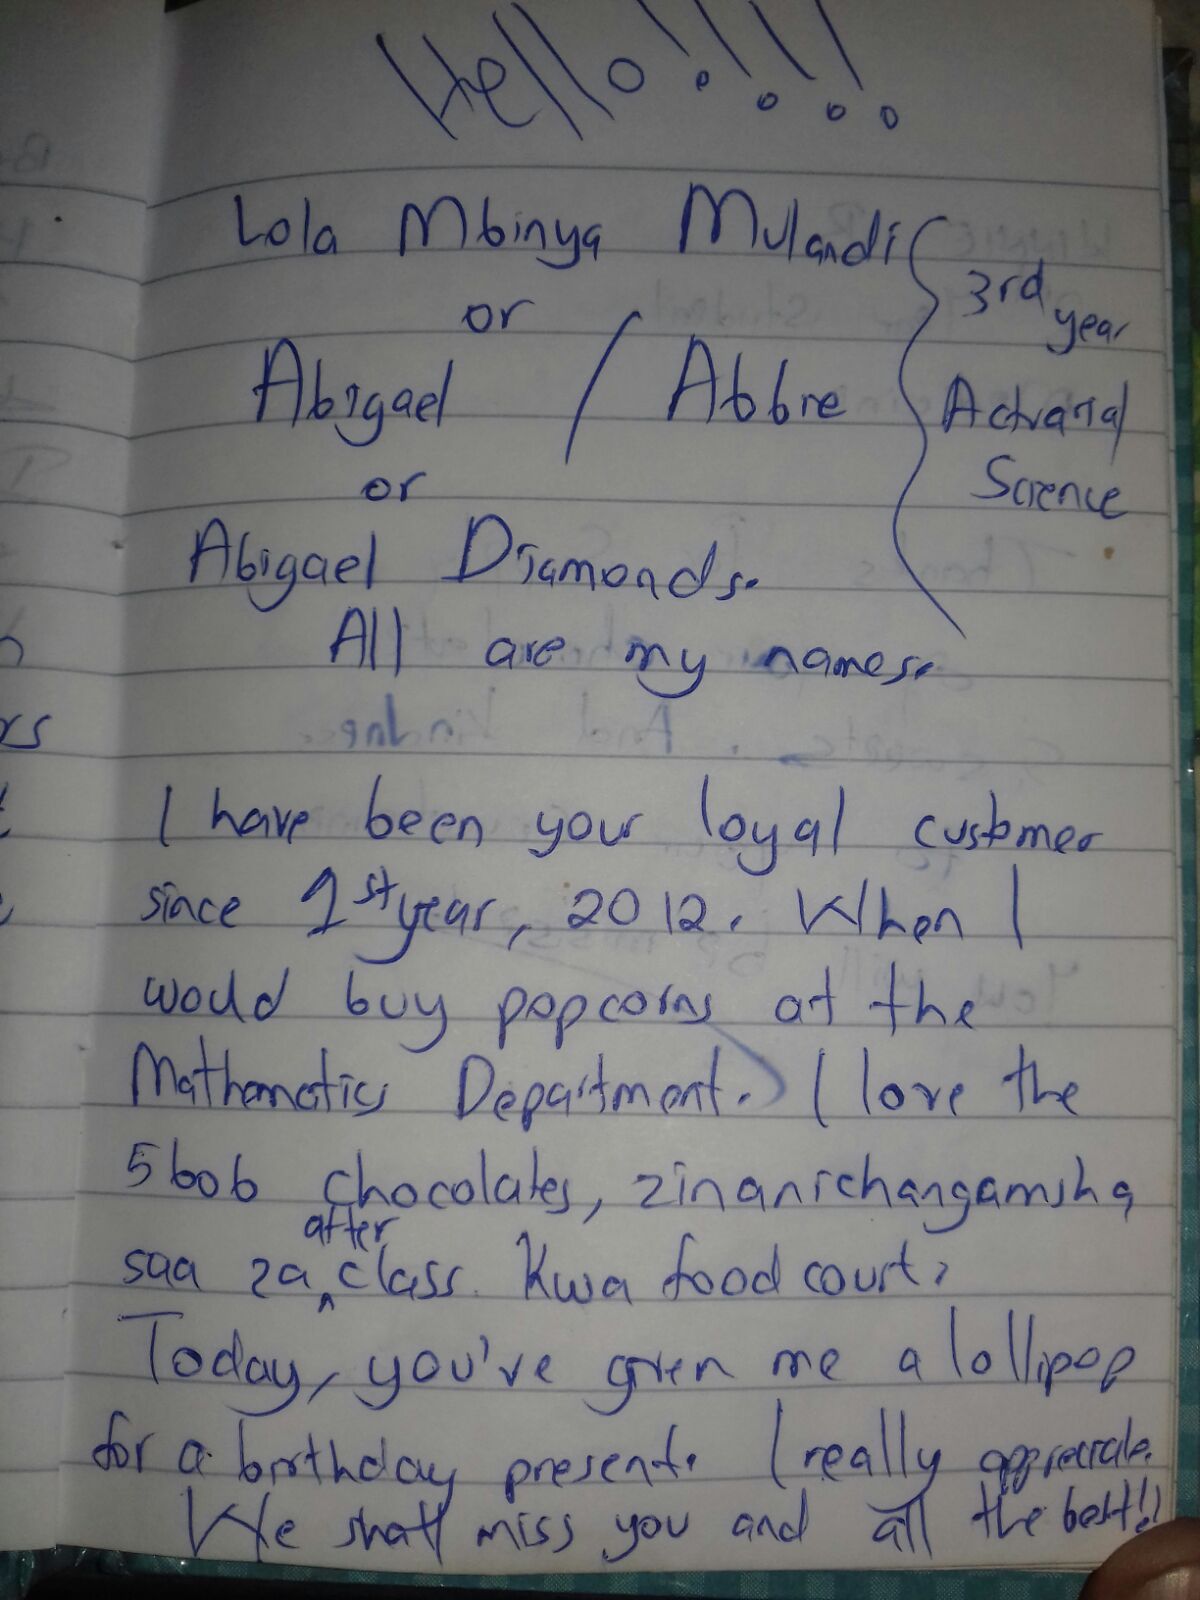 Hello!!!!
Lola Mbinya Mulandi
3rd year
or
Abigael / Abbie
Actuarial
Science
or
Abigael Diamonds.
All are my names.
I have been your loyal customer
since 1st year, 2012. When I
would buy popcorns at the
Mathematics Department. I love the
5bob chocolates, zinanichangamsha
saa za after class. Kwa food court.
Today, you've given me a lollipop
for a birthday present. I really appreciate.
We shall miss you and all the best!!